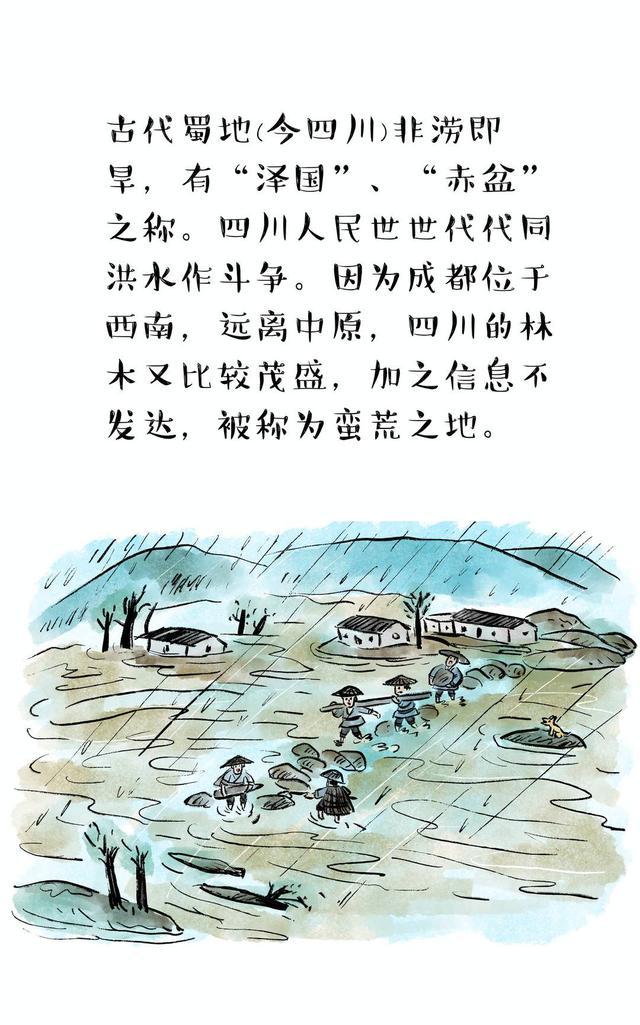 古代蜀地(今四川)非涝即
旱，有“泽国”、“赤盆”
之称。四川人民世世代代同
洪水作斗争。因为成都位于
西南，远离中原，四川的林
木又比较茂盛，加之信息不
发达，被称为蛮荒之地。